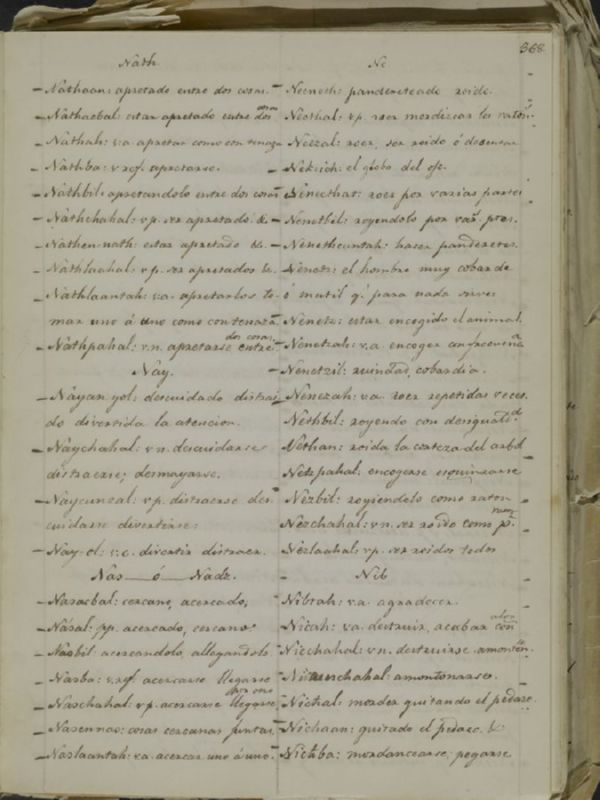 368
Nath
– Nathaan: apretado entre dos cosas.
– Nathacbal: estar apretado entre dos cosas
– Nathah: v.a. apretar como con tenaza
– Nathba: v. ref. apretarse.
– Nathbil: apretandolo entre dos cosas
– Nathchahal: v.p. ser apretado &.
– Nathen-nath: estar apretado &c.
– Nathlaahal: v.p. ser apretados &.
– Nathlaantah: v.a. apretarlos to-
mar uno á uno como con tenaza
– Nathpahal: v.n. apretarse entre dos cosas
Nay.
– Nayan yol: descuidado distrai
do divertida la atencion.
– Naychahal: v.n. descuidarse
distraerse; desmayarse.
– Naycunzal: v.p. distraerse des
cuidarse divertirse:
– Nay-ol: v.c. divertir distraer.
Nas — ó — Nadz.
– Nasacbal: cercano, acercado,
– Nasal: pp. acercado, cercano
– Nasbil acercandolo, allegandolo
– Nasba: v. ref. acercarse llegarse
– Naschahal v.p. acercarse llegarse
– Nasennas: cosas cercanas juntas
– Naslaantah: v.a. acercar uno á uno.
Ne
– Neeneth: pandereteade roide.
– Neethal: v.p. roer mordiscar los raton.
– Neezal: roer, ser roido ó
– Nekuich: el globo del ojo.
– Nenecthat: roer por varias partes
– Nenethil: royendolo por vars. pres.
– Nenethcuntah: hacer panderetes.
– Nenetz: el hombre muy cobarde
ó inutil q. para nada sirve
– Nenetz: estar encogido el animal.
– Nenetzah: v.a. encoger con frecuencia
– Nenetzil: ruindad, cobardia.
– Nenezah: v.a. roer repetidas veces
– Nethbil: royendo con desigualdd.
– Nethan: roida la corteza del arbol
– Netzpahal: encogerse
– Nezbil: royiendolo como raton
– Nezchahal: v.n. ser roido como p.
– Nezlaahal: v.p. ser roidos todos
– Nib
– Nibtah: v.a. agradecer.
– Nicah: v.a. destruir, acabar con
– Nicchahal: v.n. destruirse. amonton.
– chahal: amontonarse.
– Nichal: morder quitando el pedazo.
– Nichaan: quitado el pedazo. &
– Nichba: mordancearse, pegarse